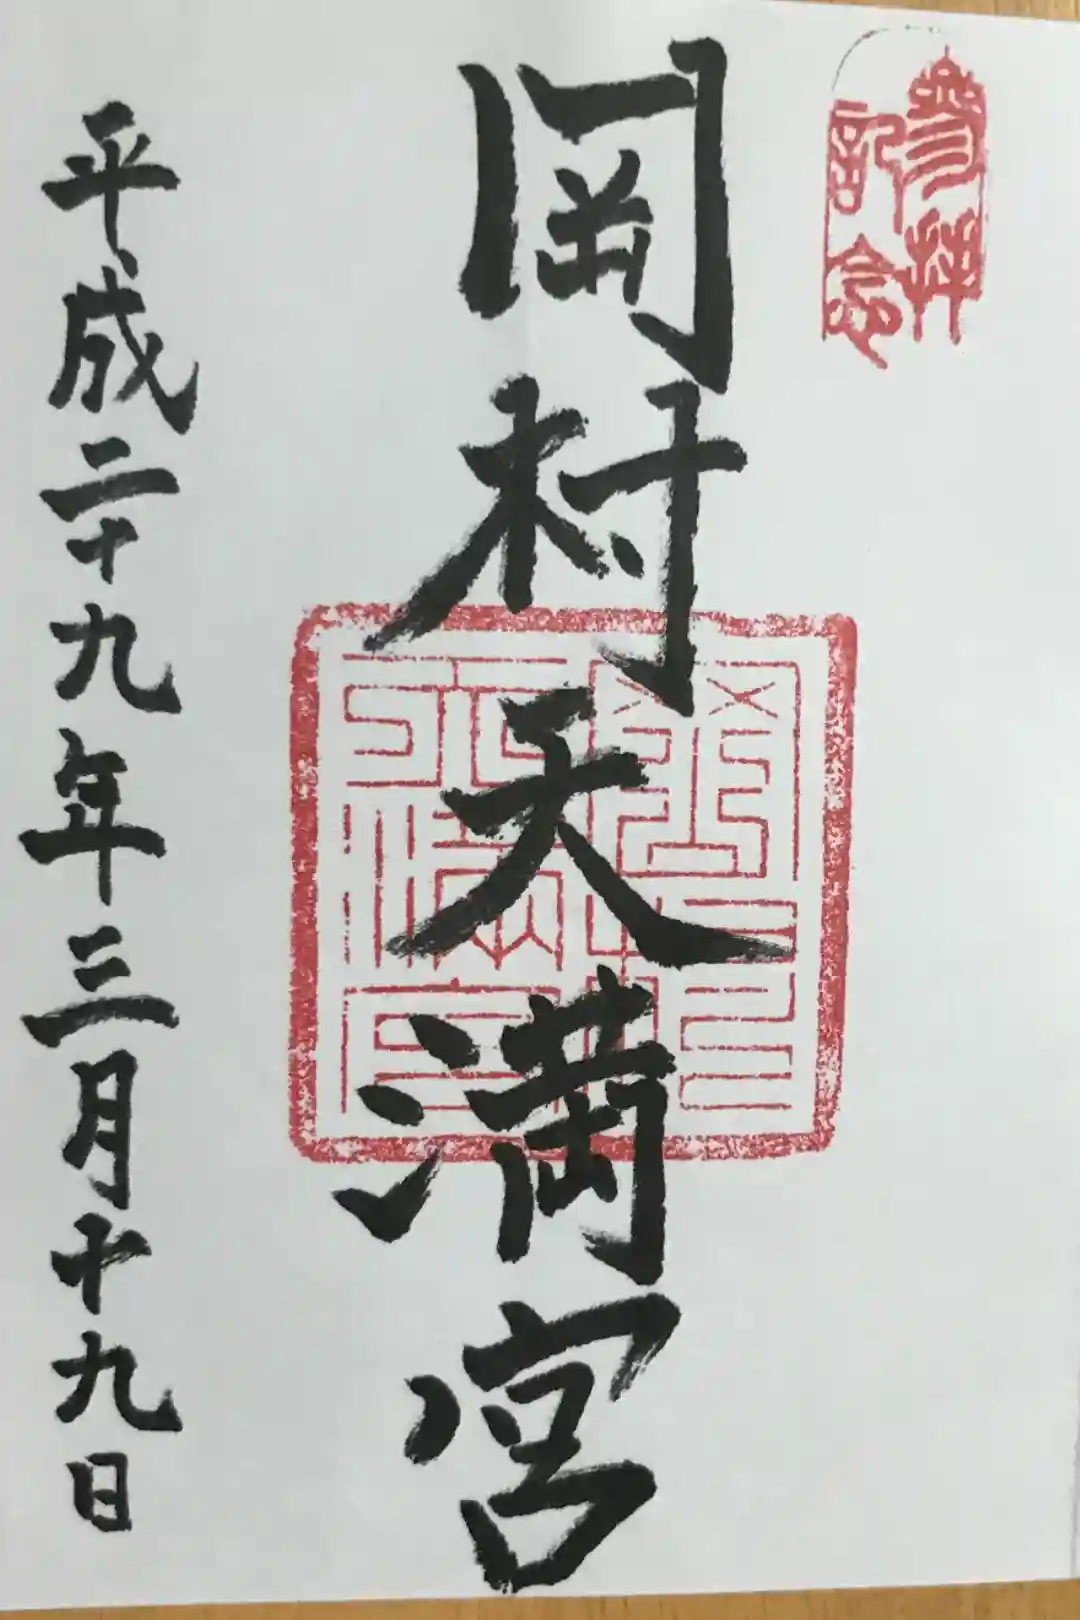 参拝
記念
岡村天満宮
平成二十九年三月十九日